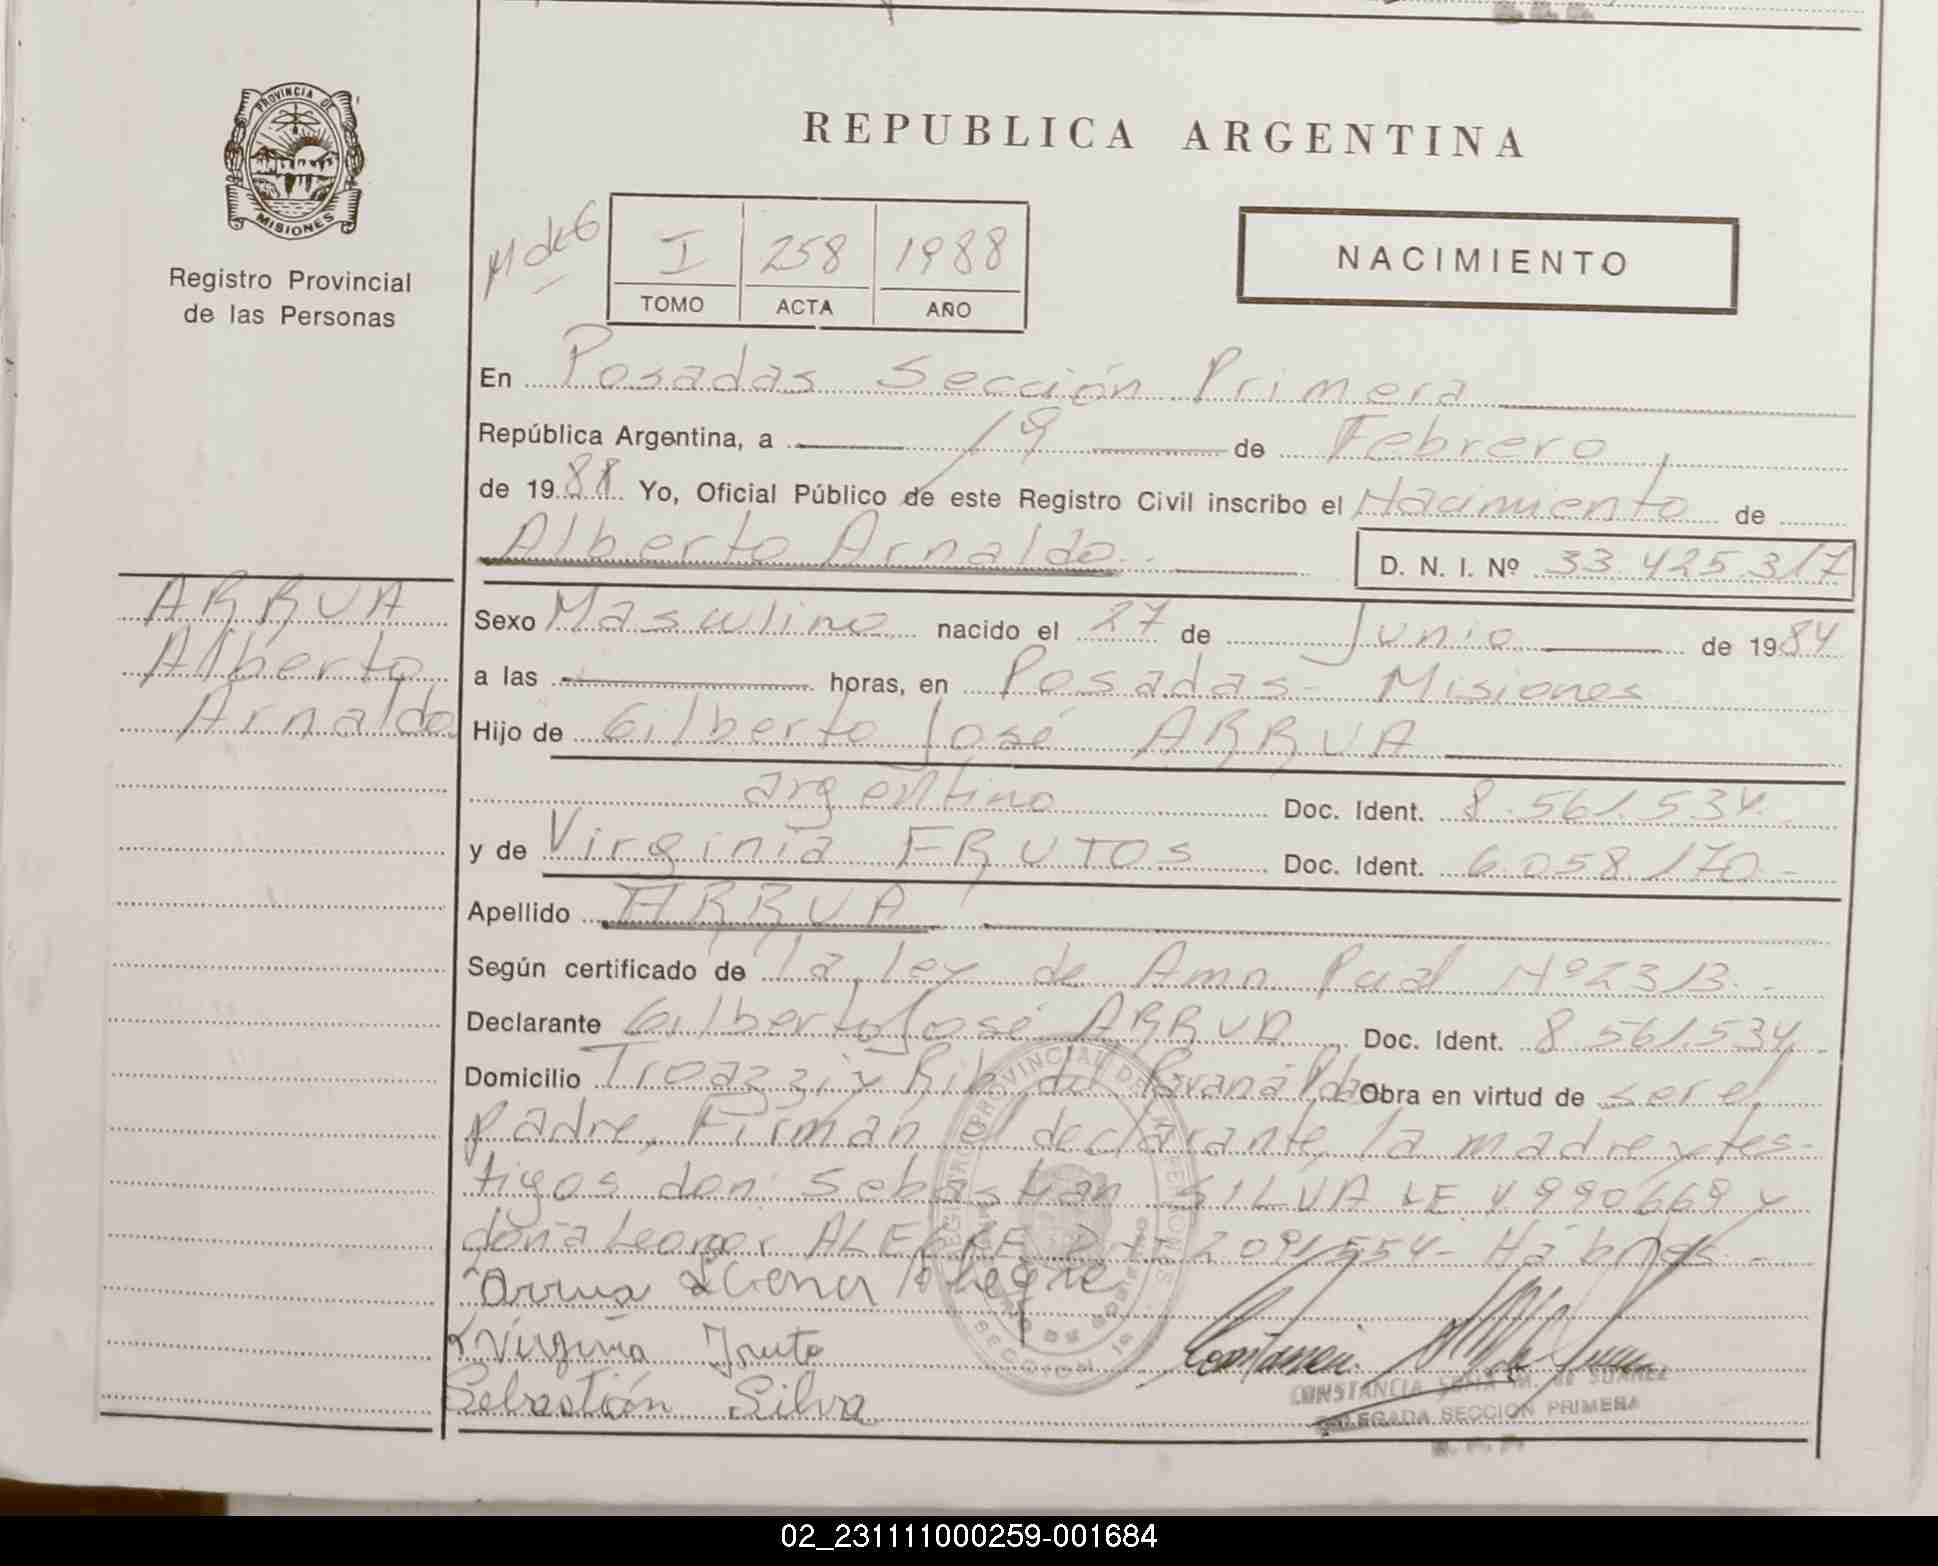 PROVINCIA DE
MISIONES
Registro Provincial
de las Personas
REPUBLICA ARGENTINA
M de G
I 258 1988
TOMO ACTA AÑO
NACIMIENTO
En Posadas Sección Primera
República Argentina, a 19 de Febrero
de 1988 Yo, Oficial Público de este Registro Civil inscribo el Nacimiento de
Alberto Arnaldo D. N. I. Nº 33.425.317
ARRUA
Alberto
Arnaldo
Sexo Masculino nacido el 27 de Junio de 1984
a las horas, en Posadas - Misiones
Hijo de Gilberto José ARRUA
argentino Doc. Ident. 8.561.534.
y de Virginia FRUTOS Doc. Ident. 6.058.170 -
Apellido ARRUA
Según certificado de la ley de Amn Pcial Nº 2313. -
Declarante Gilberto José ARRUA Doc. Ident. 8.561.534
Domicilio y Rib del Paraná Pdas Obra en virtud de ser el
padre, Firman el declarante, la madre y tes-
tigos don Sebastian SILVA LE 4.990669 y
doña Leonor ALEGRE 2091554 -
Arrua Leonor Alegre
Virginia Fruto
Sebastián Silva
REGISTRO PROVINCIAL DE LAS PERSONAS
SECCION 1ª
CONSTANCIA SOFIA M. de SUAREZ
DELEGADA SECCION PRIMERA
R. P. P.
02_231111000259-001684